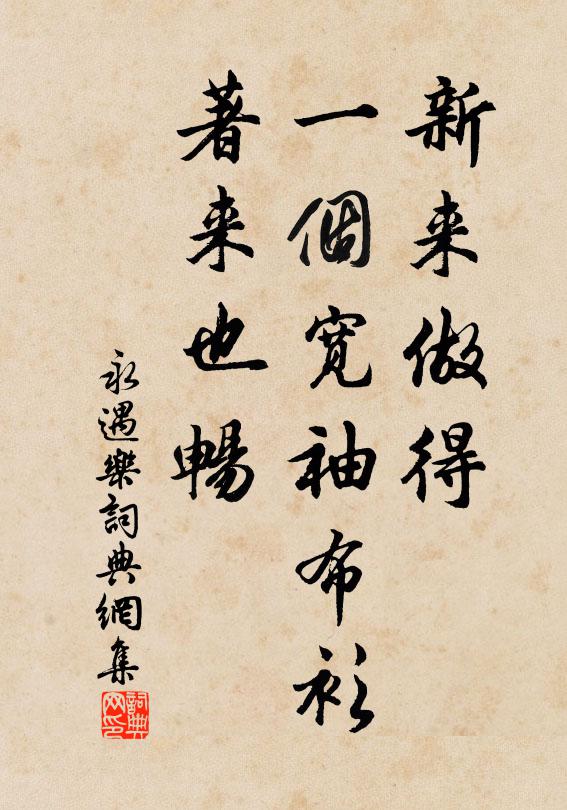 新来做得
一個寬袖布衫
著来也暢
永遇樂詞典網集
詞典
网印